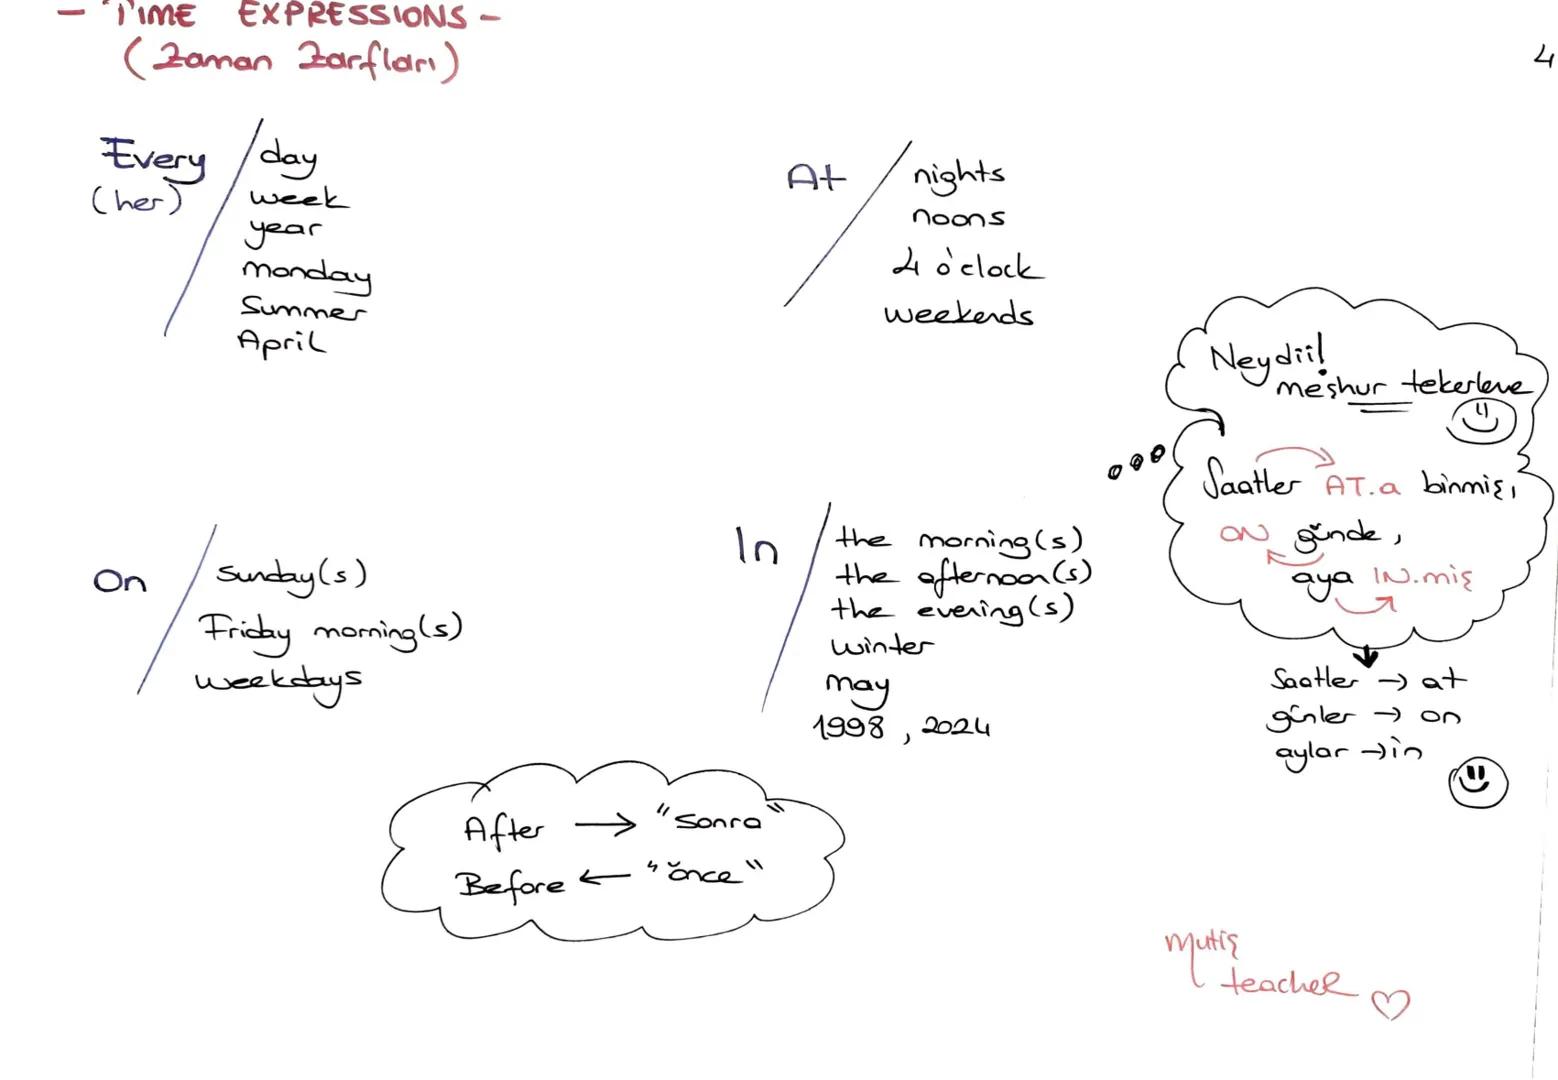 - TIME EXPRESSIONS -
(Zaman Zarfları)
4
Every
(her)
day
week
year
monday
Summer
April
At
nights
noons
4 o'clock
weekends
On
Sunday(s)
Friday morning(s)
weekdays
In
the morning(s)
the afternoon(s)
the evening(s)
winter
may
1998, 2024
Neydii!
meşhur tekerleme
Saatler AT.a binmiş,
ON günde,
aya IN.miş
Saatler → at
günler → on
aylar → in
After → "Sonra"
Before ← "önce"
Mutiş
teacher ♡